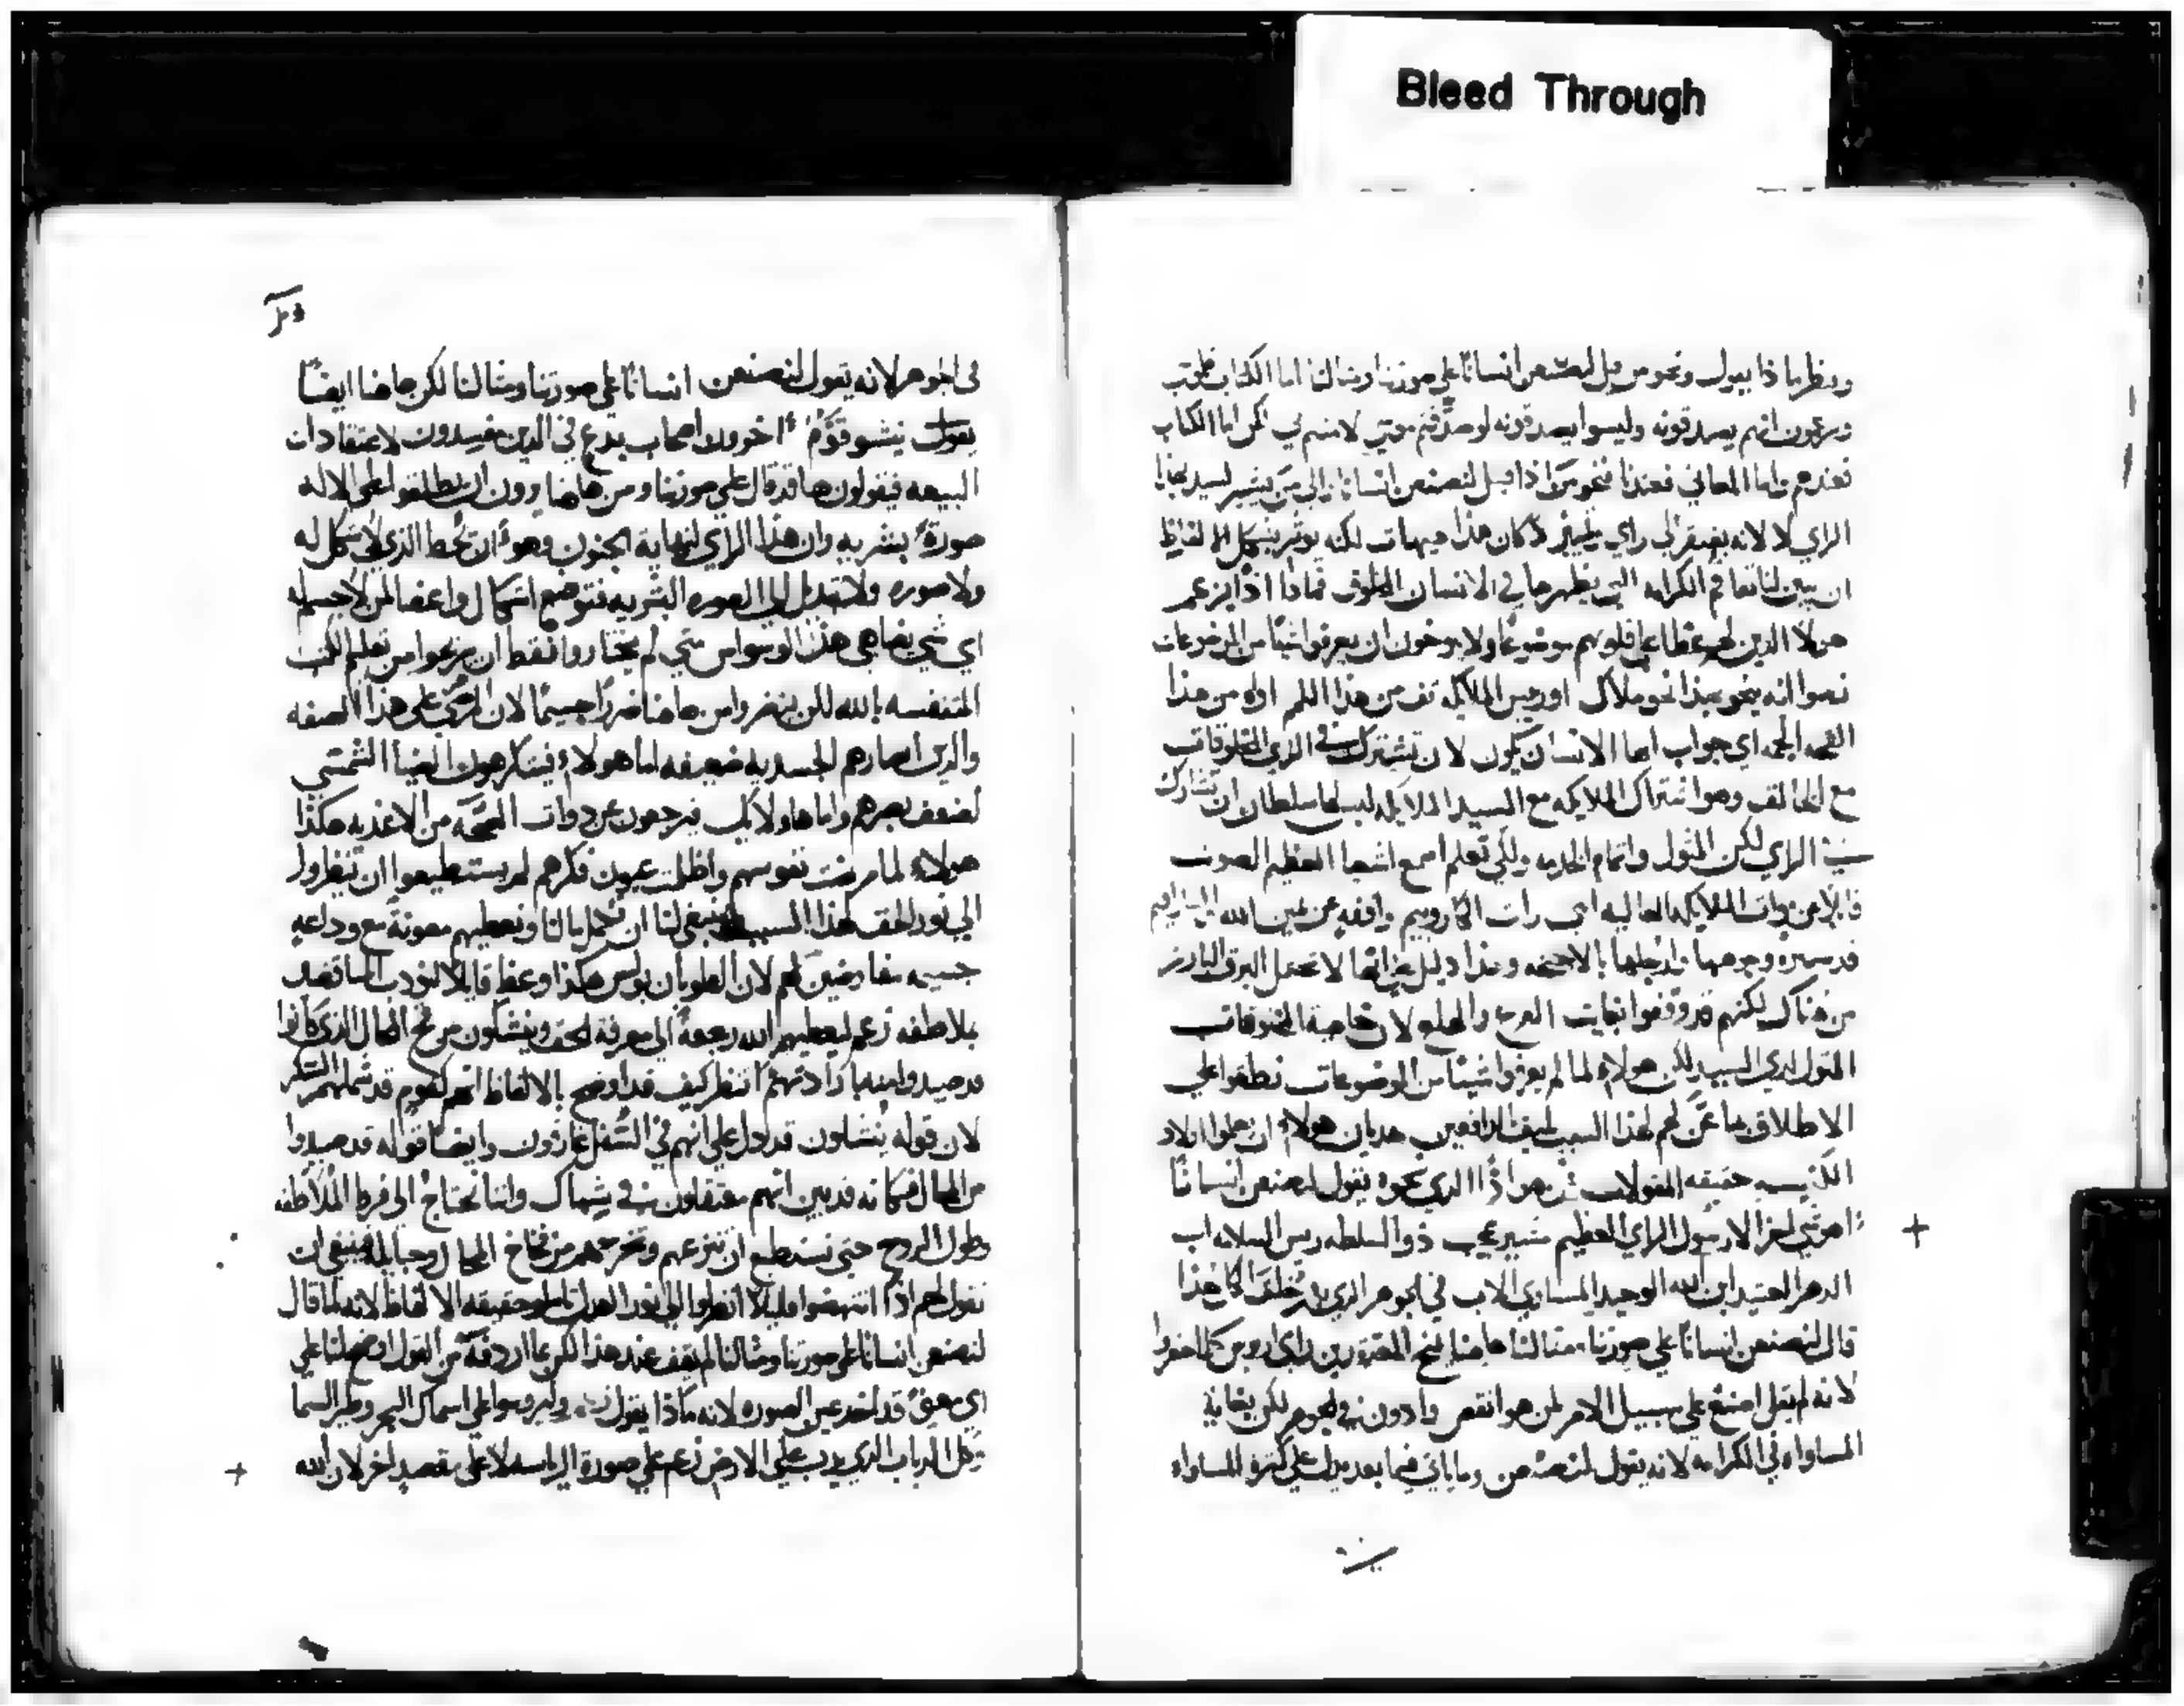 Bleed Through
وننظر ماذا يقول ونحو من قيل لنصنعن انسانًا علي صورتنا ومثالنا اما الكتاب فلموسي
ويزعمون انهم يصدقونه وليسوا يصدقونه لو صدقتم موسي لامنتم بي لكن اما الكتاب
فعندهم واما المعاني فعندنا فنحو من اذا قيل لنصنعن انسانا والي من يشير السيد بهذا
الراي لا لانه يفتقر الي راي كان هذا هيهات لكنه يوثر بشكل الالفاظ
ان يبين لنا تفاقم الكرامه التي يظهرها في الانسان المخلوق فماذا اذًا يزعم
هولا الذين لهم غطا علي قلوبهم موضوعًا ولا يريدون ان يعرفوا شيًا من الموضوعات
زعموا انه ينحو بهذا نحو ملاك او رييس الملايكه تف من هذا اللمم اوه من هذا
القحه الجمه اي جواب ايها الانسان يكون لان تشترك في الراي المخلوقات
مع الخالق وهو اشتراك الملايكه مع السيد الملايكه ليس لها سلطان ان تشارك
في الراي لكن المثول واتمام الخدمه ولكي تعلم اسمع اشعيا العظيم الصوت
قايلا عن قوات الملايكه العاليه اني رايت الكاروبيم واقفه عن يمين الله
قد ستره وجوهها وارجلها بالاجنحه وهذا دليل علي انها لا تحتمل البرق البارز
من هناك لكنهم قد وقفوا بغايت الفزع والهلع لان خاصية المخلوقات
المثول لدي السيد لكن هولاء لما لم يعرفوا شيئًا من الموضوعات نطقوا علي
الاطلاق بما عنّ لهم لهذا السبب رافعين هذيان هولاء ان يعلموا اولاد
الكنيسه حقيقه المقولات من هو اذًا الذي نحوه يقول لنصنعن انسانًا
امن شي اخر الا رسول الراي العظيم مشير عجيب ذو السلطه رييس السلامه اب
الدهر العتيد ابن الله الوحيد المساوي للاب في الجوهر الذي به خلق الكل هذا
قال لنصنعن انسانًا علي صورتنا ومثالنا هاهنا
لانه لم يقل اصنع علي سبيل الامر لمن هو انقص وادون في الجوهر لكن بغاية
المساواه في الكرامه لانه يقول لنصنعن وما ياتي فيما بعد يدل علي كثره المساواه
في الجوهر لانه يقول لنصنعن انسانًا علي صورتنا ومثالنا لكن هاهنا ايضًا
يقول ينشو قوم اخرون اصحاب بدع في الدين مفسدون لاعتقادات
البيعه فيقولون ها قد قال علي صورتنا ومن هاهنا يرون ان يطلقوا علي الاله
صورة بشريه وان هذا الراي لنهاية الجنون وهو ان نحط الذي لا شكل له
ولا صوره ولا تبديل الي الصوره البشريه فنوضع اشكال واعضا لمن لا جسم له
اي شي يضاهي هذا الوسواس متي لم يختاروا فقط ان يربحوا من تعليم الكتب
المتنفسه بالله لكن ينضروا من هاهنا ضررًا جسيمًا لان علي هذا الصفه
والذين ابصارهم الجسديه ضعيفه اما هولاء فيتكرهون الضيا الشمسي
لضعف بصرهم واما هاولايك فيرجعون عن ذوات الصحه من الاغذيه هكذا
هولاء لما مرضت نفوسهم واظلمت عيون فكرهم لم يستطيعوا ان ينظروا
الي نور الحق لهذا السبب ينبغي لنا ان نحمل بالنا ونعطيهم معونة مع وداعه
جسيمه مفاوضين لهم لان الطوبان بولس هكذا وعظ قايلا لتودب المناقضه
بلاطفه زعم ليعطيهم الله رجعة الي معرفة الحق وينشلون من فخ المحال الذي كانوا
قد صيدوا منه بارادتهم انظر كيف قد اوضح بالالفاظ انهم كقوم قد شملهم السكر
لان قوله ينشلون قد دل علي انهم في السفل غارقون وايضًا قوله قد صيدوا
من المحال فكانه قد بين انهم معتقلون في شباك ولنا نحتاج الي فرط الملاطفه
وطول الروح حتي نستطيع ان ننتزعهم ونخرجهم من فخاخ المحال وحباله فينبغي ان
نقول لهم اذًا انتهضوا قليلا انظروا الي نور العدل حقيقه الالفاظ لانه لما قال
لنصنعن انسانًا علي صورتنا ومثالنا لم يقف عند هذا لكن بما اردفه من القول اوضح لنا علي
اي معني قد اخذ عين الصوره لانه ماذا يقول وليروسوا علي اسماك البحر وطير السما
وكل الدباب الذي يدب علي الارض زعم علي صورة الرياسه لا علي مقصد اخر لان الله